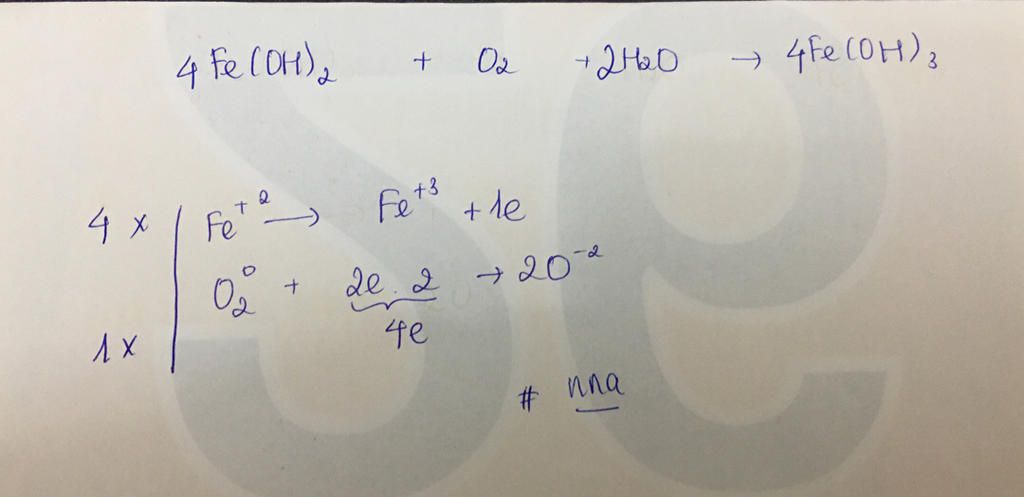 4 Fe(OH)₂ + O₂ + 2H₂O → 4Fe(OH)₃
4 x | Fe⁺² → Fe⁺³ + 1e
O₂⁰ + 2e . 2 → 2O⁻²
4e
1 x
# nna